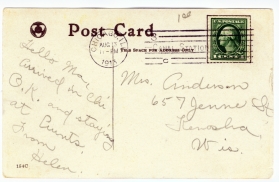 Post Card
THIS SPACE FOR ADDRESS ONLY
AUG 17
1 CENT 1
Hello Mae
Arrived in Chi
O.K. and staying
at Aunts.
From
Helen.
Mrs. Anderson
657 Jenne St
Kenosha
Wis.